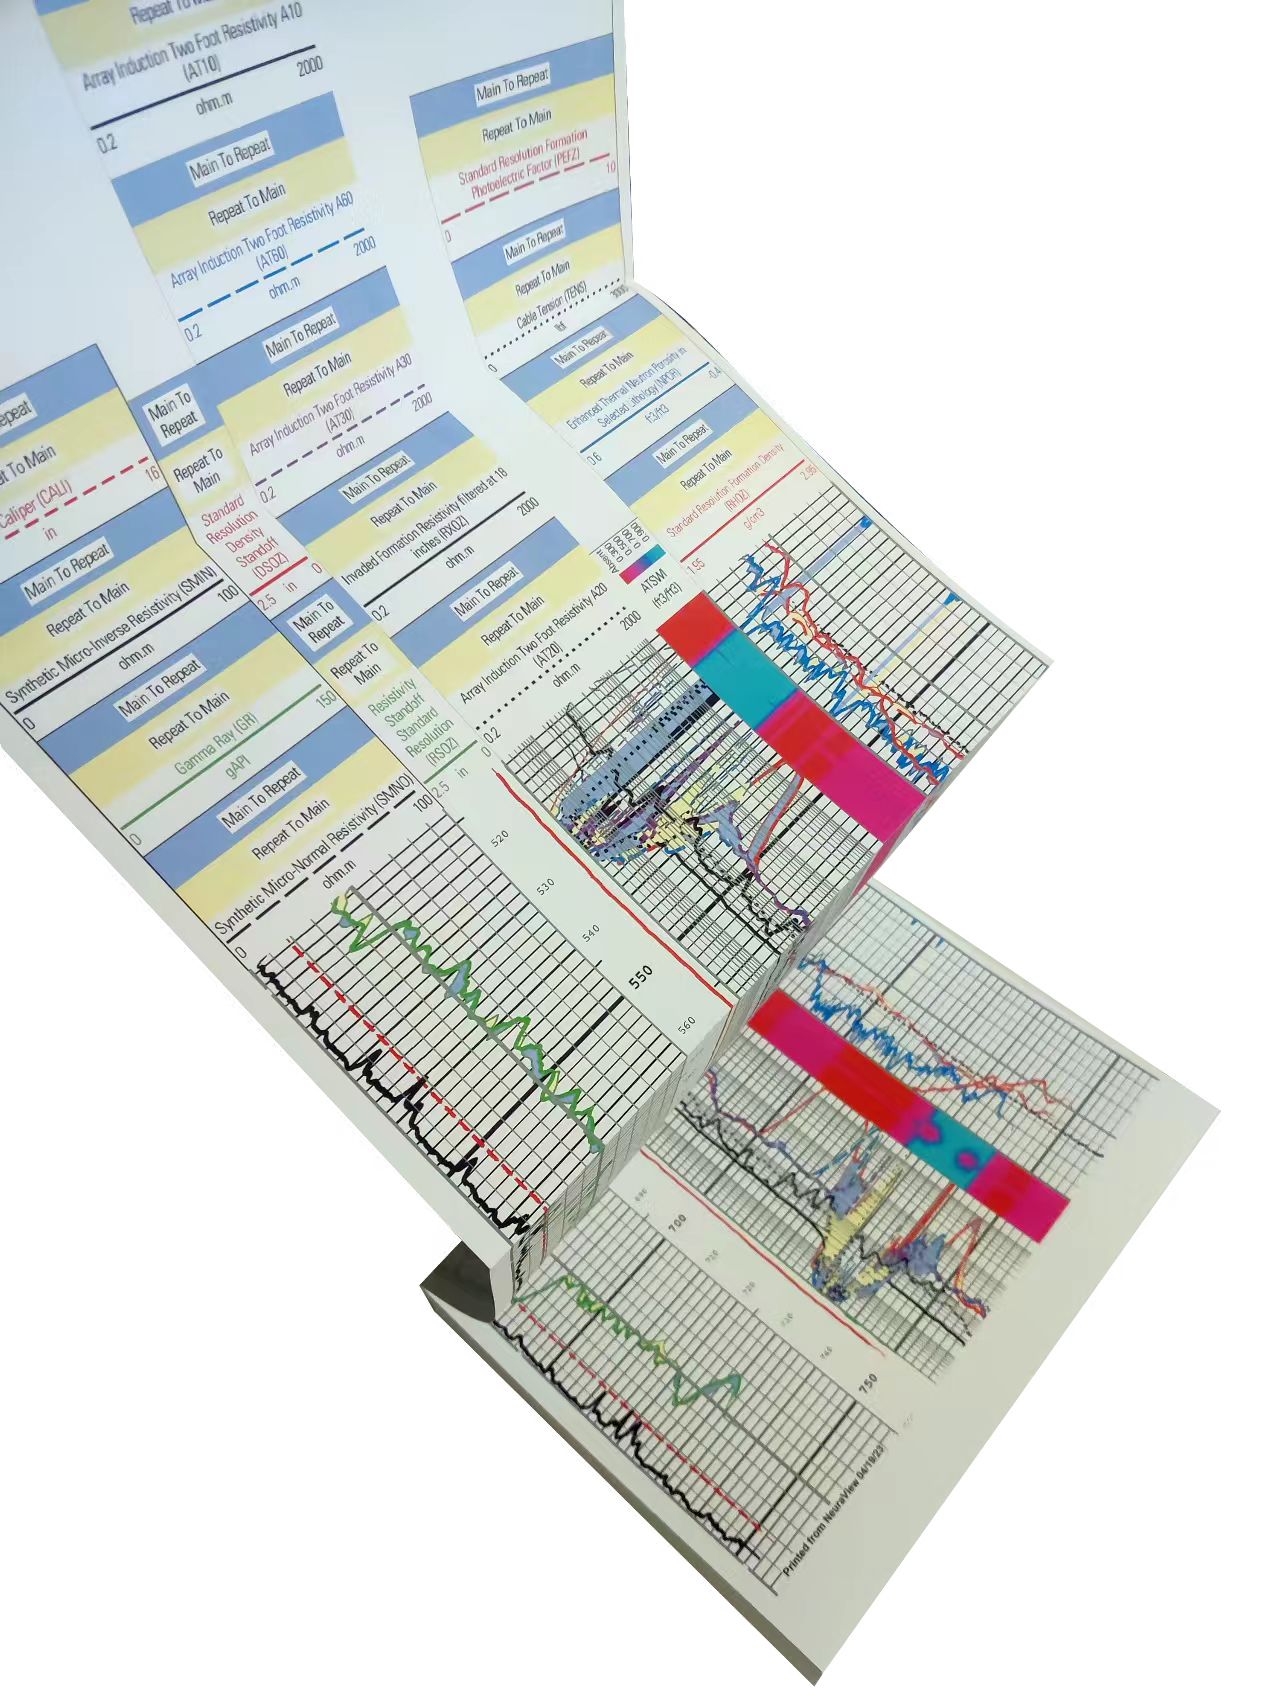 Array Induction Two Foot Resistivity A10
(AT10)
0.2
ohm.m
2000
Main To Repeat
Repeat To Main
Array Induction Two Foot Resistivity A60
(AT60)
0.2
ohm.m
2000
Main To Repeat
Repeat To Main
Array Induction Two Foot Resistivity A30
(AT30)
0.2
ohm.m
2000
Main To Repeat
Repeat To Main
Invaded Formation Resistivity filtered at 18
inches (RXOZ)
0.2
ohm.m
2000
Main To Repeat
Repeat To Main
Array Induction Two Foot Resistivity A20
(AT20)
0.2
ohm.m
2000
Main To Repeat
Repeat To Main
Standard Resolution Formation
Photoelectric Factor (PEFZ)
0
10
Main To Repeat
Repeat To Main
Cable Tension (TENS)
0
lbf
Main To Repeat
Repeat To Main
Enhanced Thermal Neutron Porosity in
Selected Lithology (NPOR)
0.6
ft3/ft3
-0.4
Main To Repeat
Repeat To Main
Standard Resolution Formation Density
(RHOZ)
1.55
g/cm3
2.95
Absent
0.300
0.500
0.700
0.900
ATSWI
(ft3/ft3)
To Main
Caliper (CALI)
in
16
Main To Repeat
Repeat To Main
Synthetic Micro-Inverse Resistivity (SMIN)
0
ohm.m
100
Main To Repeat
Repeat To Main
Gamma Ray (GR)
0
gAPI
150
Main To Repeat
Repeat To Main
Synthetic Micro-Normal Resistivity (SMNO)
0
ohm.m
100
Main To
Repeat
Repeat To
Main
Standard
Resolution
Density
Standoff
(DSOZ)
2.5 in 0
Main To
Repeat
Repeat To
Main
Resistivity
Standoff
Standard
Resolution
(RSOZ)
2.5 in 0
520
530
540
550
560
690
700
710
720
730
740
750
Printed from NeuraView 04/19/23